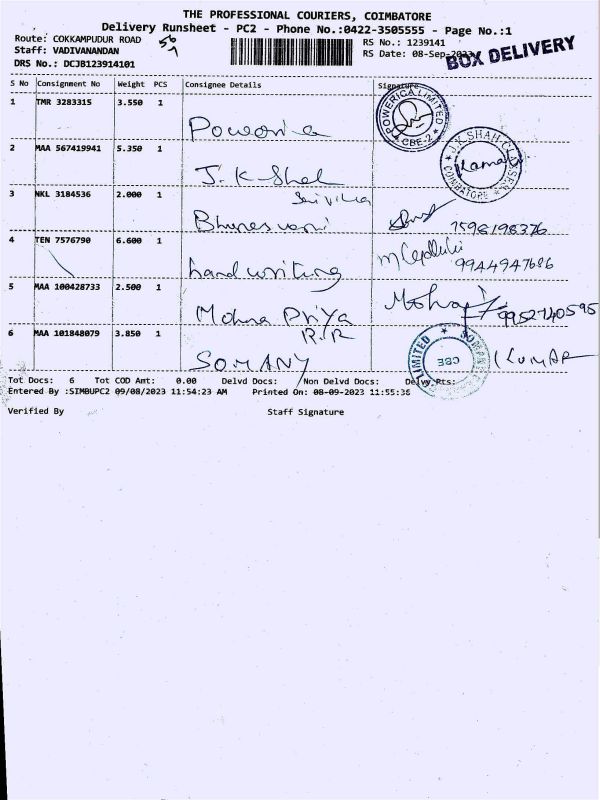 THE PROFESSIONAL COURIERS, COIMBATORE
Delivery Runsheet - PC2 - Phone No.:0422-3505555 - Page No.:1
Route: COKKAMPUDUR ROAD RS No.: 1239141
Staff: VADIVANANDAN RS Date: 08-Sep-2023
BOX DELIVERY
DRS No.: DCJB123914101
S No Consignment No Weight PCS Consignee Details Signature
1 TMR 3283315 3.550 1
POWERICA LIMITED CBE-2
2 MAA 567419941 5.350 1
J.K. Shah
J.K SHAH CLASSES COIMBATORE
Kamal
3 NKL 3184536 2.000 1
Bhuneswari 7598198376
4 TEN 7576790 6.600 1
hand writing 9944947686
5 MAA 100428733 2.500 1
Mohna Priya 9952740595
R.R
6 MAA 101848079 3.850 1
SOMANY
LIMITED CBE
KUMAR
Tot Docs: 6 Tot COD Amt: 0.00 Delvd Docs: Non Delvd Docs: Delvy Pts:
Entered By :SIMBUPC2 09/08/2023 11:54:23 AM Printed On: 08-09-2023 11:55:36
Verified By Staff Signature